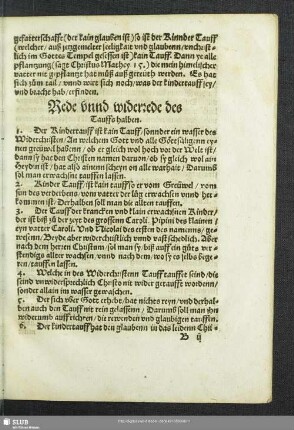 gefatterschafft (der kain glauben ist der Kinnder Tauff
(welcher / auß jergemelter seeligkait vnd glaubenn / vnchristlich
im Gottes Tempel gesessen ist) kain Tauff. Dann ye alle
pflantzung (sagt Christus Mathey 15.) die mein himelischer
vatter nit gepflantzt hat müß auß gereüth werden. Es hat
sich züm tail / vnnd wirt sich noch / was der kindertauff sey /
vnd brache hab / erfinden.
Rede vnnd widerrede des
Tauffs halben.
1. Der Kindertauff ist kain Tauff / sonnder ein wasser des
Widerchristen / An welchem Gott vnd alle Götseligen
eynen greüwel habenn / ob er gleich wol hoch vor der Welt ist /
dann sy hat den Christen namen daruon / ob sy gleich wol ain
Heydin ist / hat also ain scheyn / aber on alle warhait / Darumb
sol man erwachsne tauffen lassen.
2. Kinder Tauff / ist kain tauff so er vom Greüwel / vom
sün des verderbens / vom vatter der lüg erwachsen vnnd her
kommen ist / Derhalben soll man die allten tauffen.
3. Der Tauff der krancken vnd klain erwachsnen Kinder /
der ist biß zü der zeyt des grossenn Caroli. Pipini des klainen
eyn vatter Caroli. Vnd Nicolai des ersten des namenns / gewesenn.
Beyde aber widerchristlich vnnd vast schedlich. Aber
nach dem herren Christum / soll man sy / biß auff ein güts verstendigs
alter wachsen / vnnd nach dem / wo sy es selbs begeren /
tauffen lassen.
4. Welche in des Widerchristenn Tauff taufft seind / die
seind vnwidersprechlich Christo nit wider getaufft worden /
sonder allain im wasser gewaschen.
5. Der sich über Gott erhebt / hat nichts reyn / vnd derhalben
auch den Tauff nit rein gelassenn / Darumb soll man jhn
widerumb auffrichten / die rewenden vnd glaubigen tauffen.
6. Der kindertauff hat den glaubenn in das leiden Chri-
B ij
SLUB